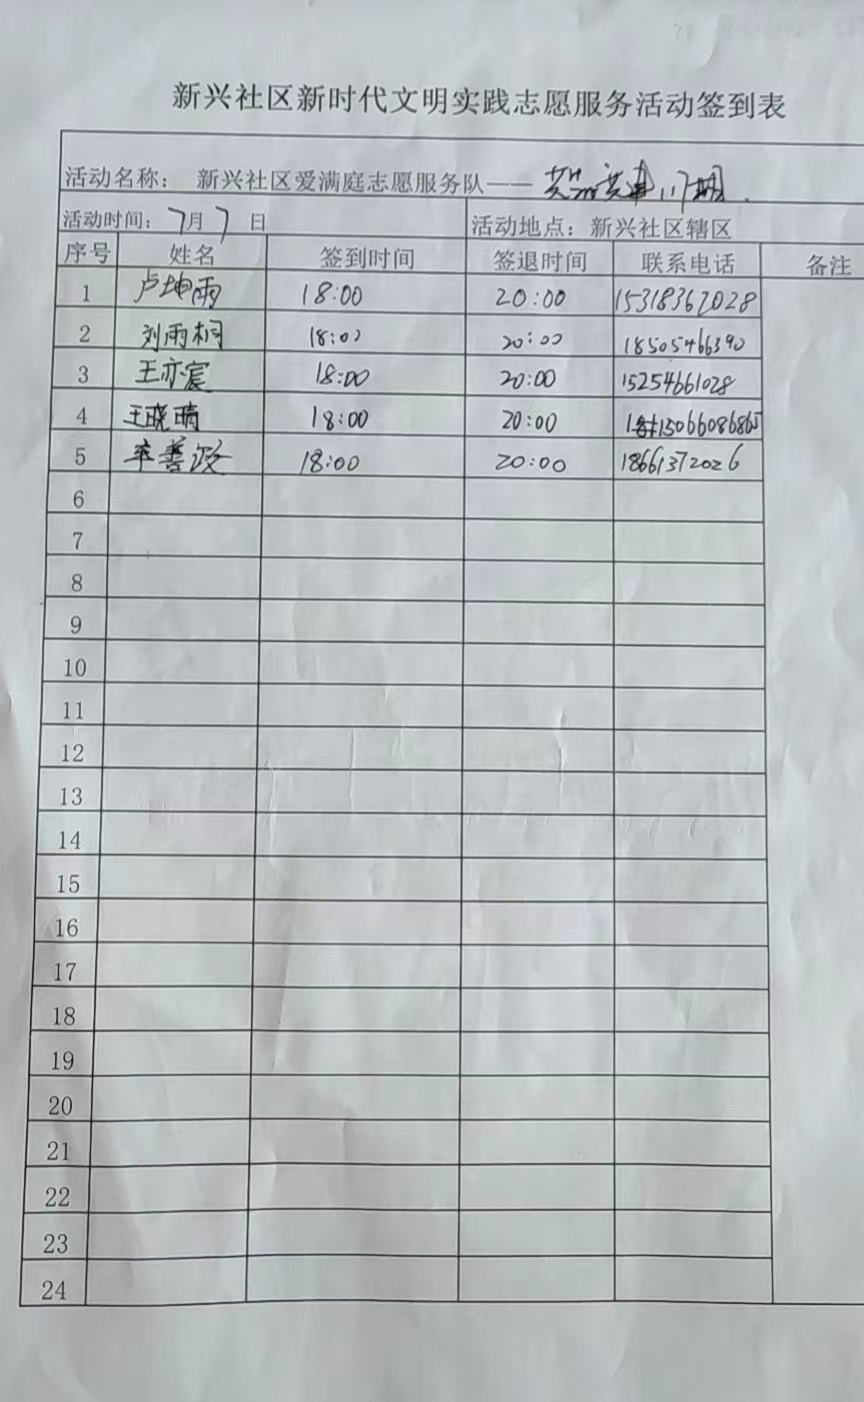 新兴社区新时代文明实践志愿服务活动签到表
活动名称： 新兴社区爱满庭志愿服务队——
活动时间：7月7日 活动地点：新兴社区辖区
序号 姓名 签到时间 签退时间 联系电话 备注
1 卢坤雨 18:00 20:00 15318367028
2 刘雨桐 18:00 20:00 18505466390
3 王亦宸 18:00 20:00 15254661028
4 王晓晴 18:00 20:00 15066086865
5 18:00 20:00 18661372026
6
7
8
9
10
11
12
13
14
15
16
17
18
19
20
21
22
23
24